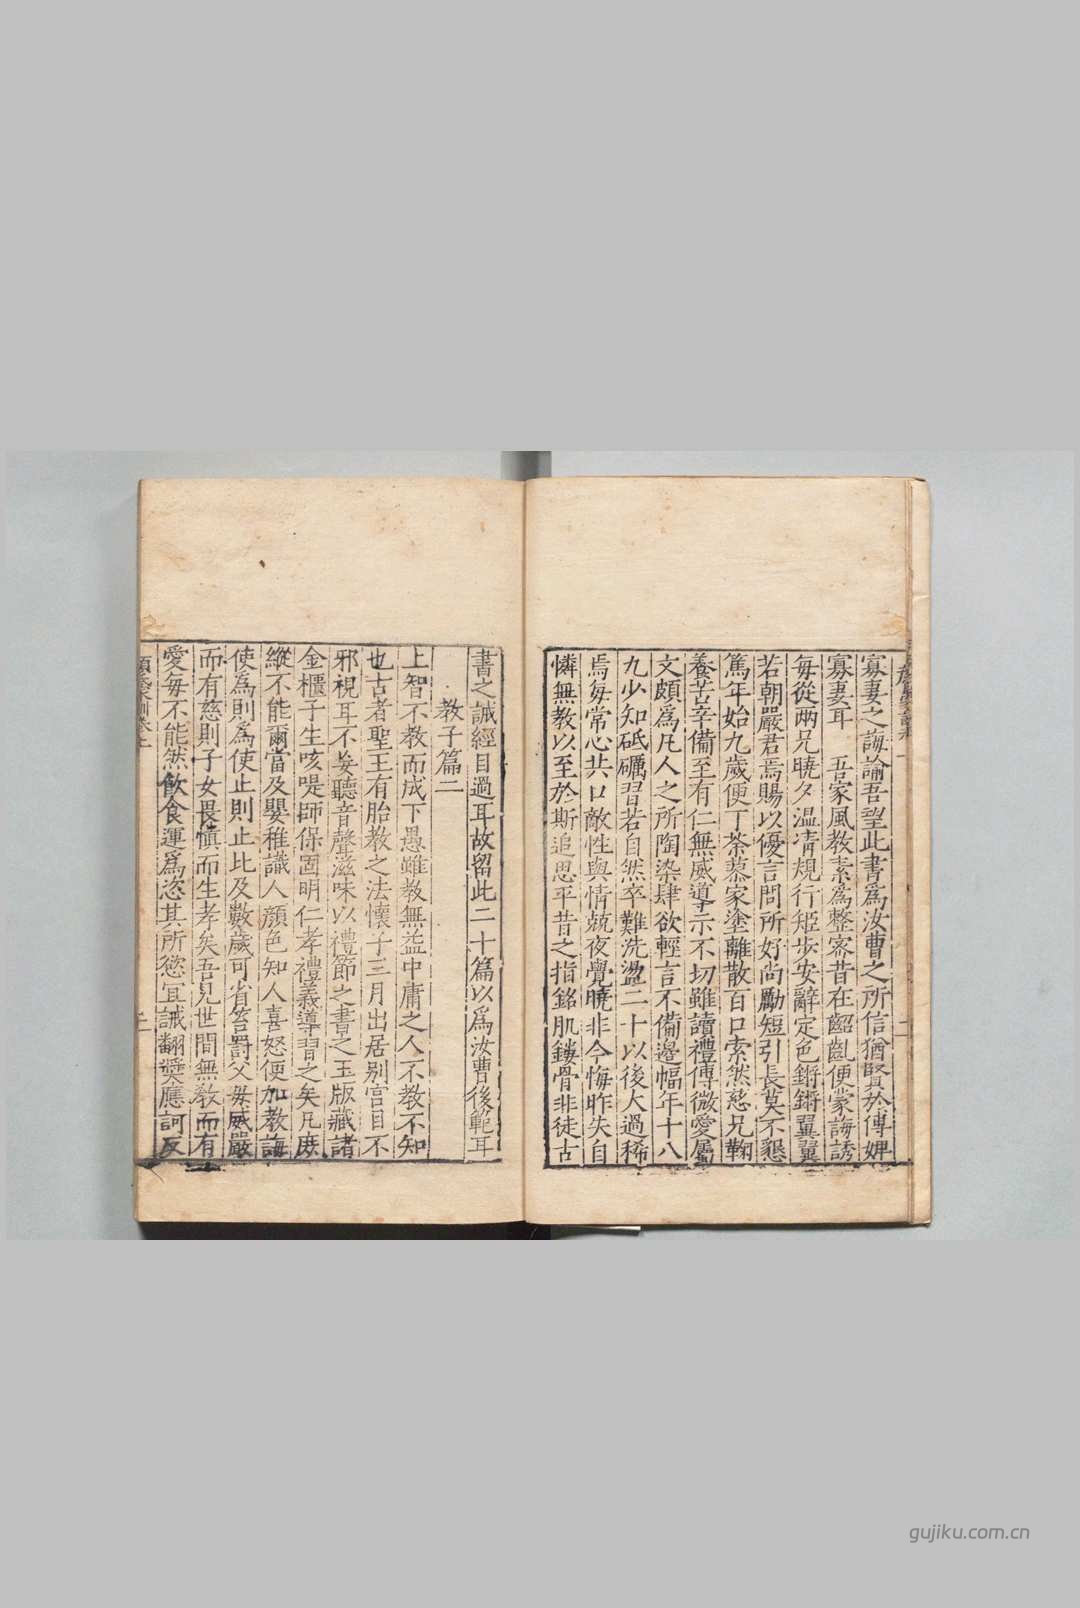 寡妻之誨諭吾望此書爲汝曹之所信猶賢於傅婢
寡妻耳 吾家風教素爲整密昔在齠齓便蒙誨誘
每從两兄曉夕温凊規行矩步安辭定色鏘鏘翼翼
若朝嚴君焉賜以優言問所好尚勵短引長莫不懇
篤年始九歲便丁荼蓼家塗離散百口索然慈兄鞠
養苦辛備至有仁無威導示不切雖讀禮傳微愛屬
文頗爲凡人之所陶染肆欲輕言不備邉幅年十八
九少知砥礪習若自然卒難洗盪二十以後大過稀
焉每常心共口敵性與情兢夜覺曉非今悔昨失自
憐無教以至於斯追思平昔之指銘肌鏤骨非徒古
書之誡經目過耳故留此二十篇以爲汝曹後範耳
教子篇二
上智不教而成下愚雖教無益中庸之人不教不知
也古者聖王有胎教之法懷子三月出居别宫目不
邪視耳不妄聽音聲滋味以禮節之書之玉版藏諸
金櫃子生咳㖷師保固明仁孝禮義導習之矣凡庶
縱不能爾當及嬰稚識人顔色知人喜怒便加教誨
使爲則爲使止則止比及數歲可省笞罰父毋威嚴
而有慈則子女畏慎而生孝矣吾見世間無教而有
愛每不能然飲食運爲恣其所慾宜誡翻奬應訶反
顔氏家訓卷上
二
gujiku.com.cn